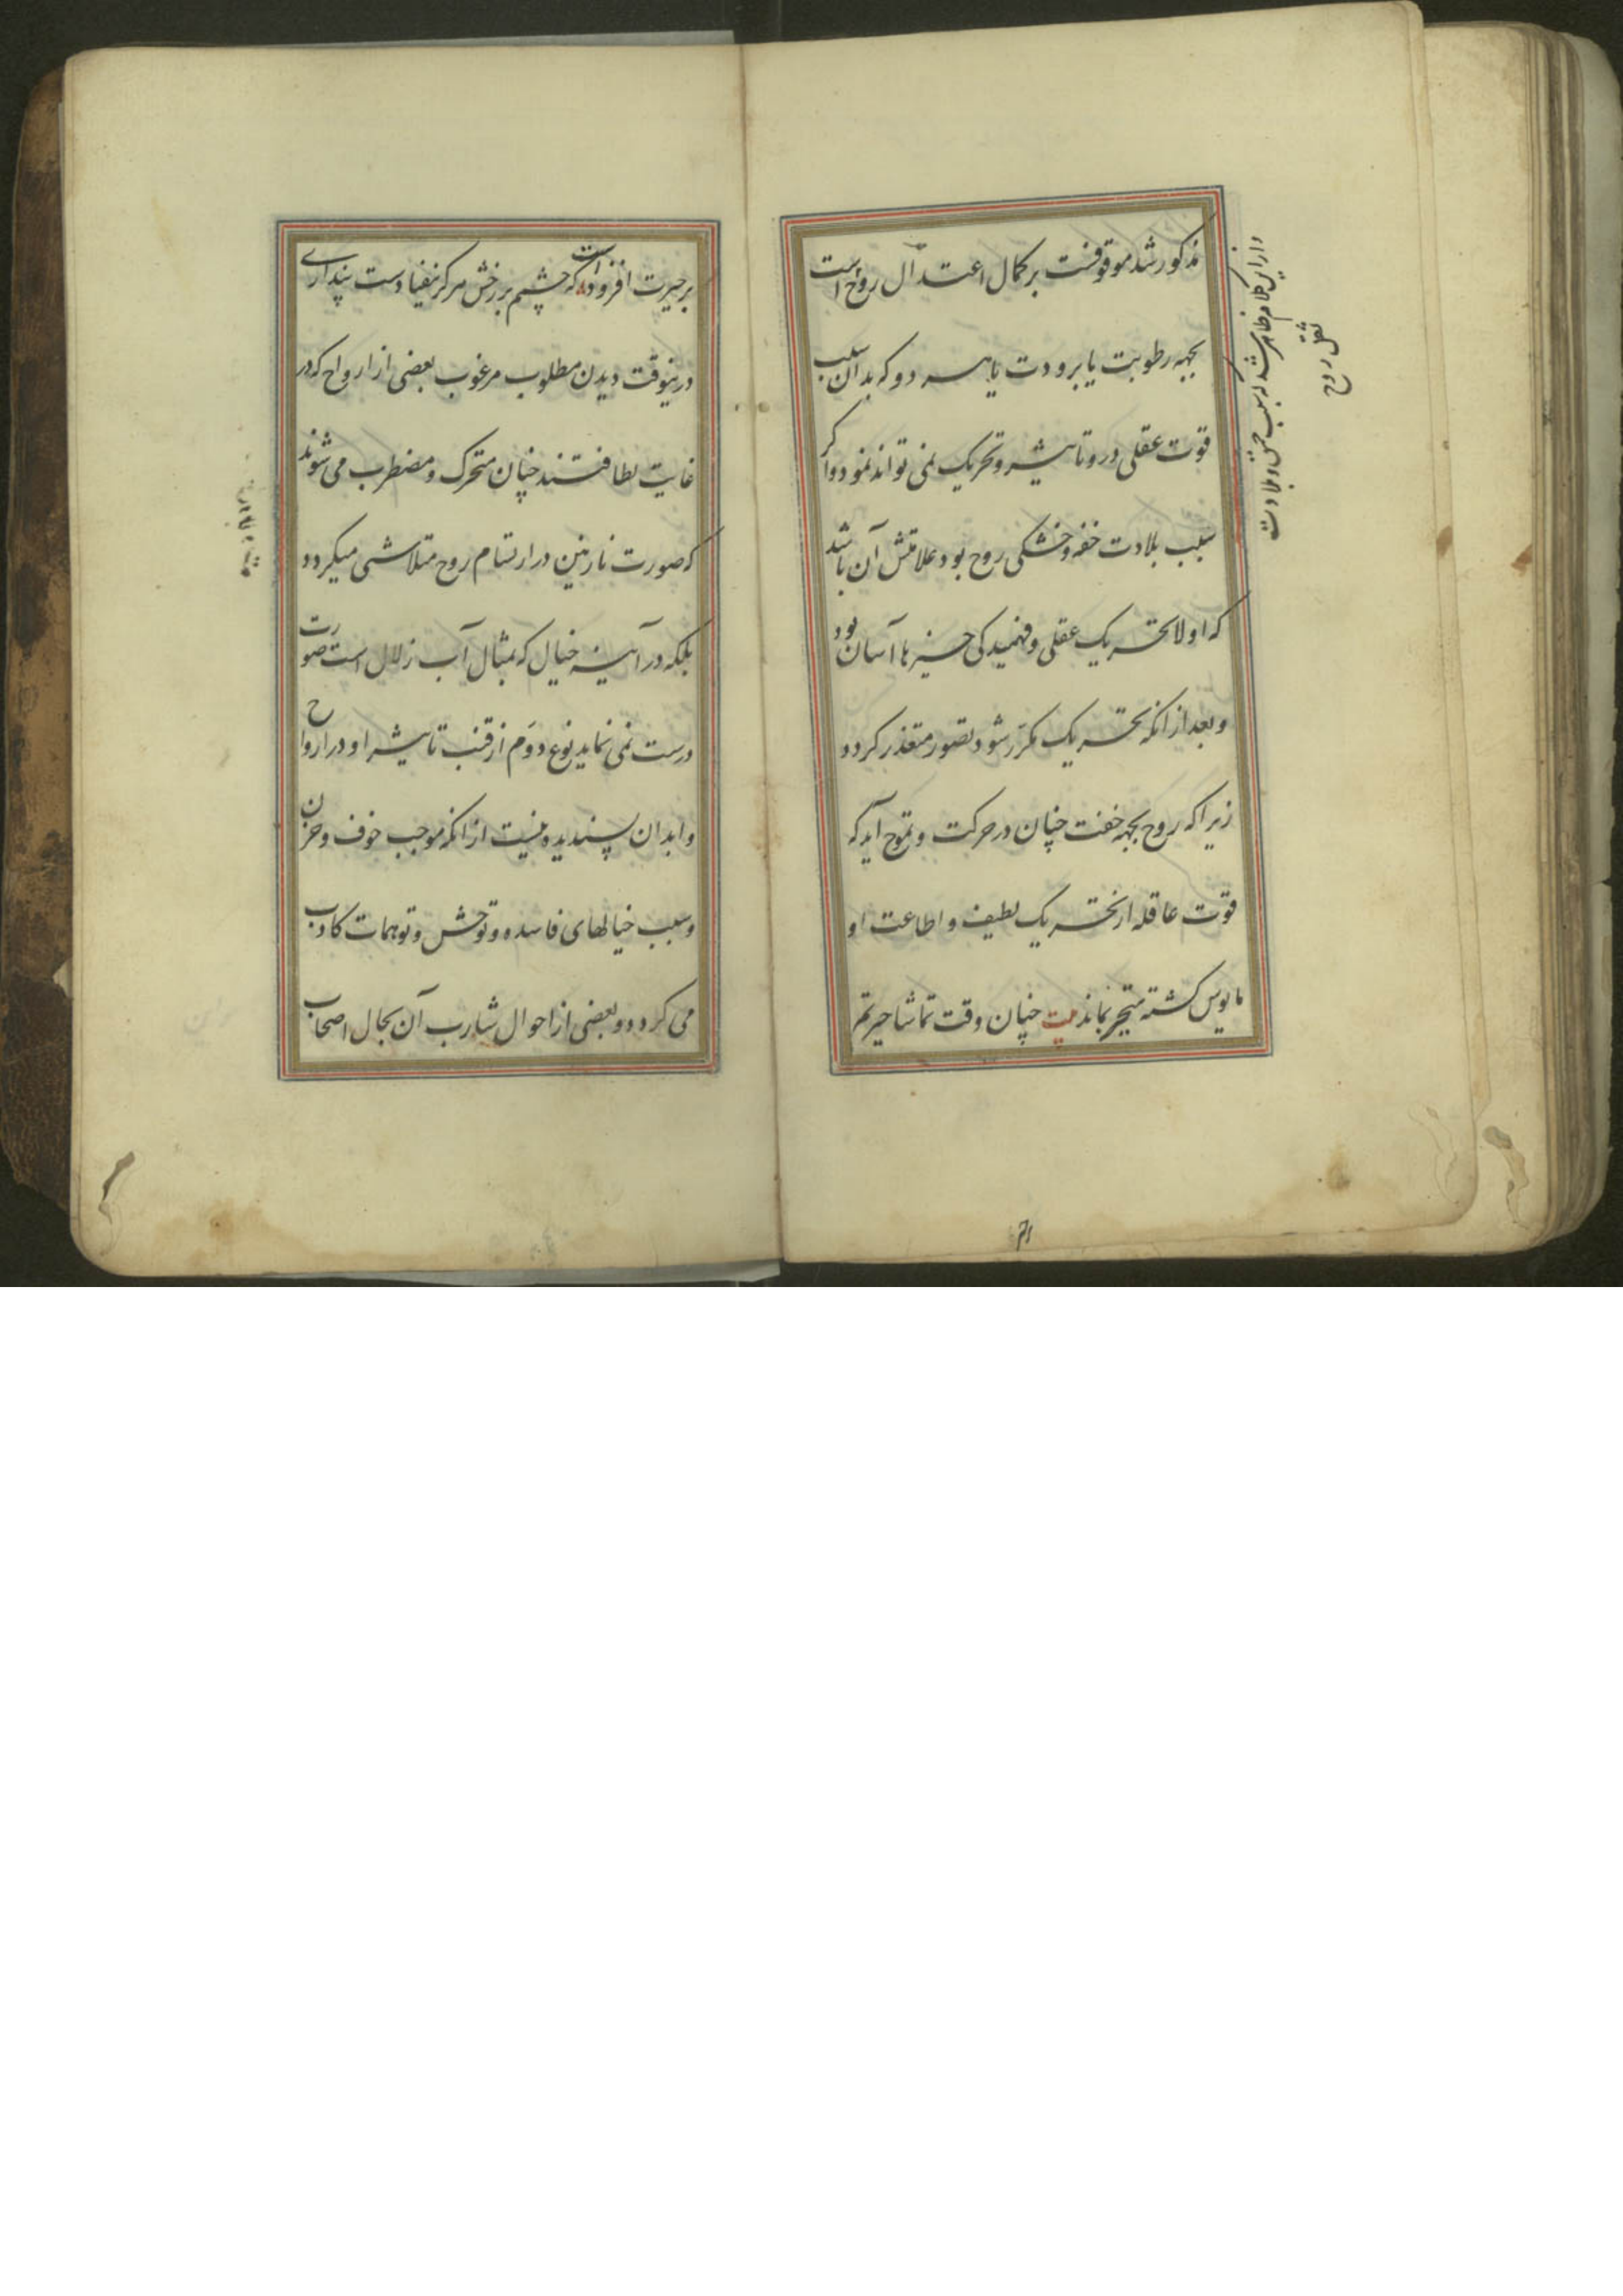 مذکور شد موقوفست بر کمال اعتدال روح است
بجهه رطوبت یا برودت یا بهر دو که بدان سبب
قوت عقلی درو تاثیر و تحریک نمی تواند نمود و اکر
سبب بلادت خفه و خشکی روح بود علامتش آن باشد
که اولا تحریک عقلی و فهمیدکی چیزها آسان بود
و بعد از انکه تحریک مکرر شود تصور متعذر کردد
زیرا که روح بجهه خفت چنان در حرکت و تموج آید که
قوت عاقله از تحریک لطیف و اطاعت او
مایوس کشته متحیر بماند بیت چنان وقت تماشا حیرتم
وازاین کلام ظاهر شد که سبب حمق و بلادت
ثقل روح
بر حیرت افزودست که چشم بر رخش هرکز نیفتادست پنداری
درینوقت دیدن مطلوب مرغوب بعضی از ارواح که در
غایت لطافتند چنان متحرک و مضطرب می شوند
که صورت نازنین در ارتسام روح متلاشی میکردد
بلکه در آیینه خیال که بمثال آب زلال است صورت
درست نمی نماید نوع دوم از قنب تاثیر او در ارواح
و ابدان پسندیده نیست از انکه موجب خوف و حزن
و سبب خیالهای فاسده و توحش و توهمات کاذب
می کردد و بعضی از احوال شارب آن بحال اصحاب